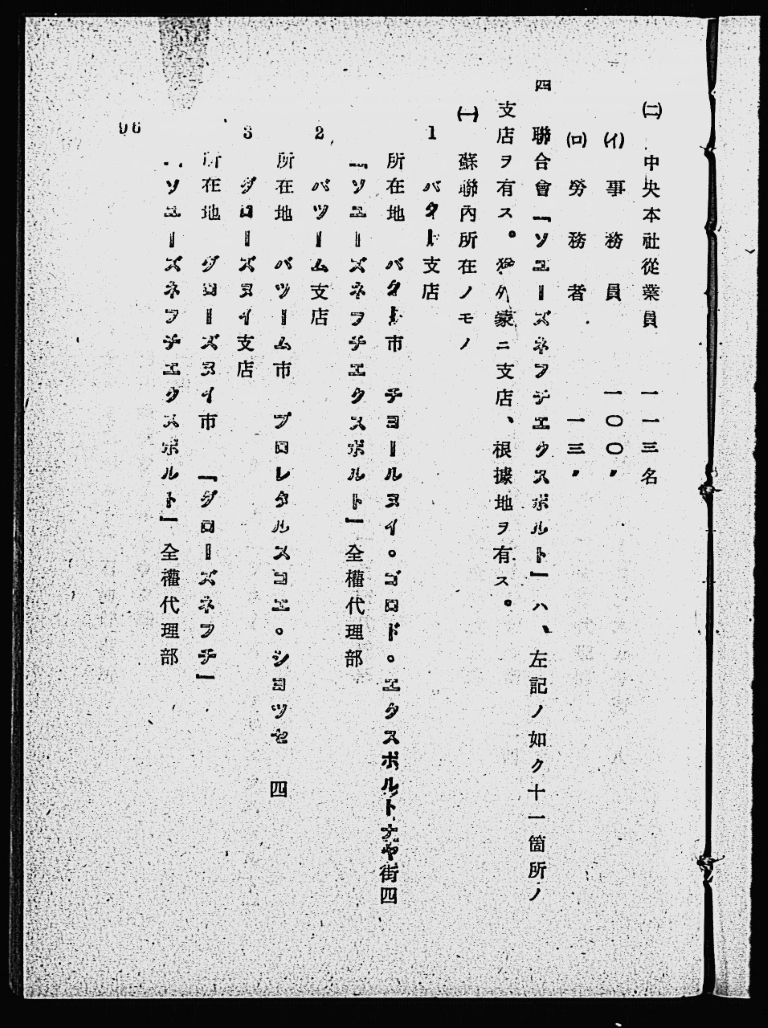 ㈡ 中央本社從業員 一一三名
(イ) 事務員 一〇〇〃
(ロ) 勞務者 一三〃
四 聯合會「ソユーズネフチエクスポルト」ハ、左記ノ如ク十一箇所ノ
支店ヲ有ス。 ニ支店、根據地ヲ有ス。
㈠ 蘇聯內所在ノモノ
1 バタート支店
所在地 市 チヨールヌイ。ゴロド。エクスポルトナヤ街四
「ソユーズネフチエクスポルト」全權代理部
2 バツーム支店
所在地 バツーム市 プロレタルスコエ。シヨツセ 四
3 グローズヌイ支店
所在地 グローズヌイ市 「グローズネフチ」
「ソユーズネフチエクスポルト」全權代理部
96